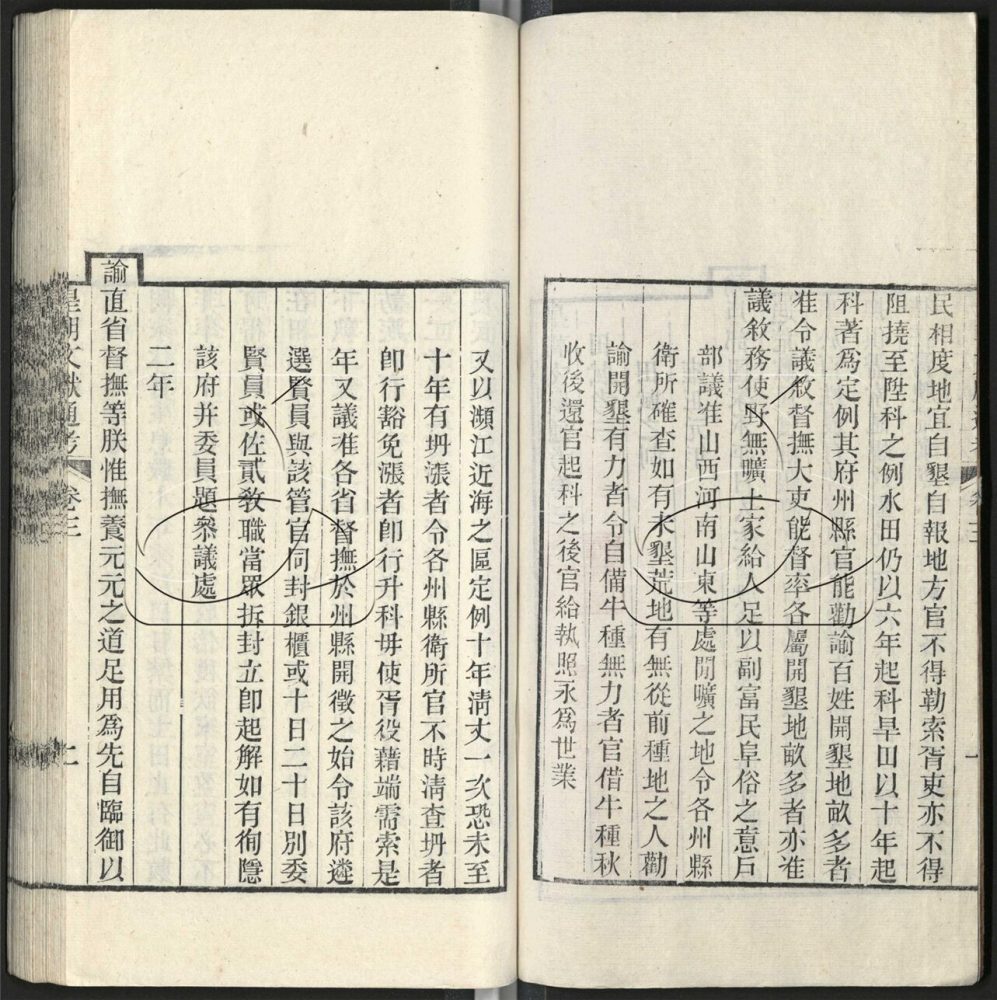 民相度地宜自墾自報地方官不得勒索胥吏亦不得
阻撓至陞科之例水田仍以六年起科旱田以十年起
科著為定例其府州縣官能勸諭百姓開墾地畝多者
准令議敘督撫大吏能督率各屬開墾地畝多者亦准
議敘務使野無曠土家給人足以副富民阜俗之意戶
部議准山西河南山東等處閒曠之地令各州縣
衛所確查如有未墾荒地有無從前種地之人勸
諭開墾有力者令自備牛種無力者官借牛種秋
收後還官起科之後官給執照永為世業
又以瀕江近海之區定例十年清丈一次恐未至
十年有坍漲者令各州縣衛所官不時清查坍者
卽行豁免漲者卽行升科毋使胥役藉端需索是
年又議准各省督撫於州縣開徵之始令該府遴
選賢員與該管官同封銀櫃或十日二十日別委
賢員或佐貳敎職當眾拆封立卽起解如有徇隱
該府并委員題叅議處
二年
諭直省督撫等朕惟撫養元元之道足用爲先自臨御以
皇朝文獻通考 卷三